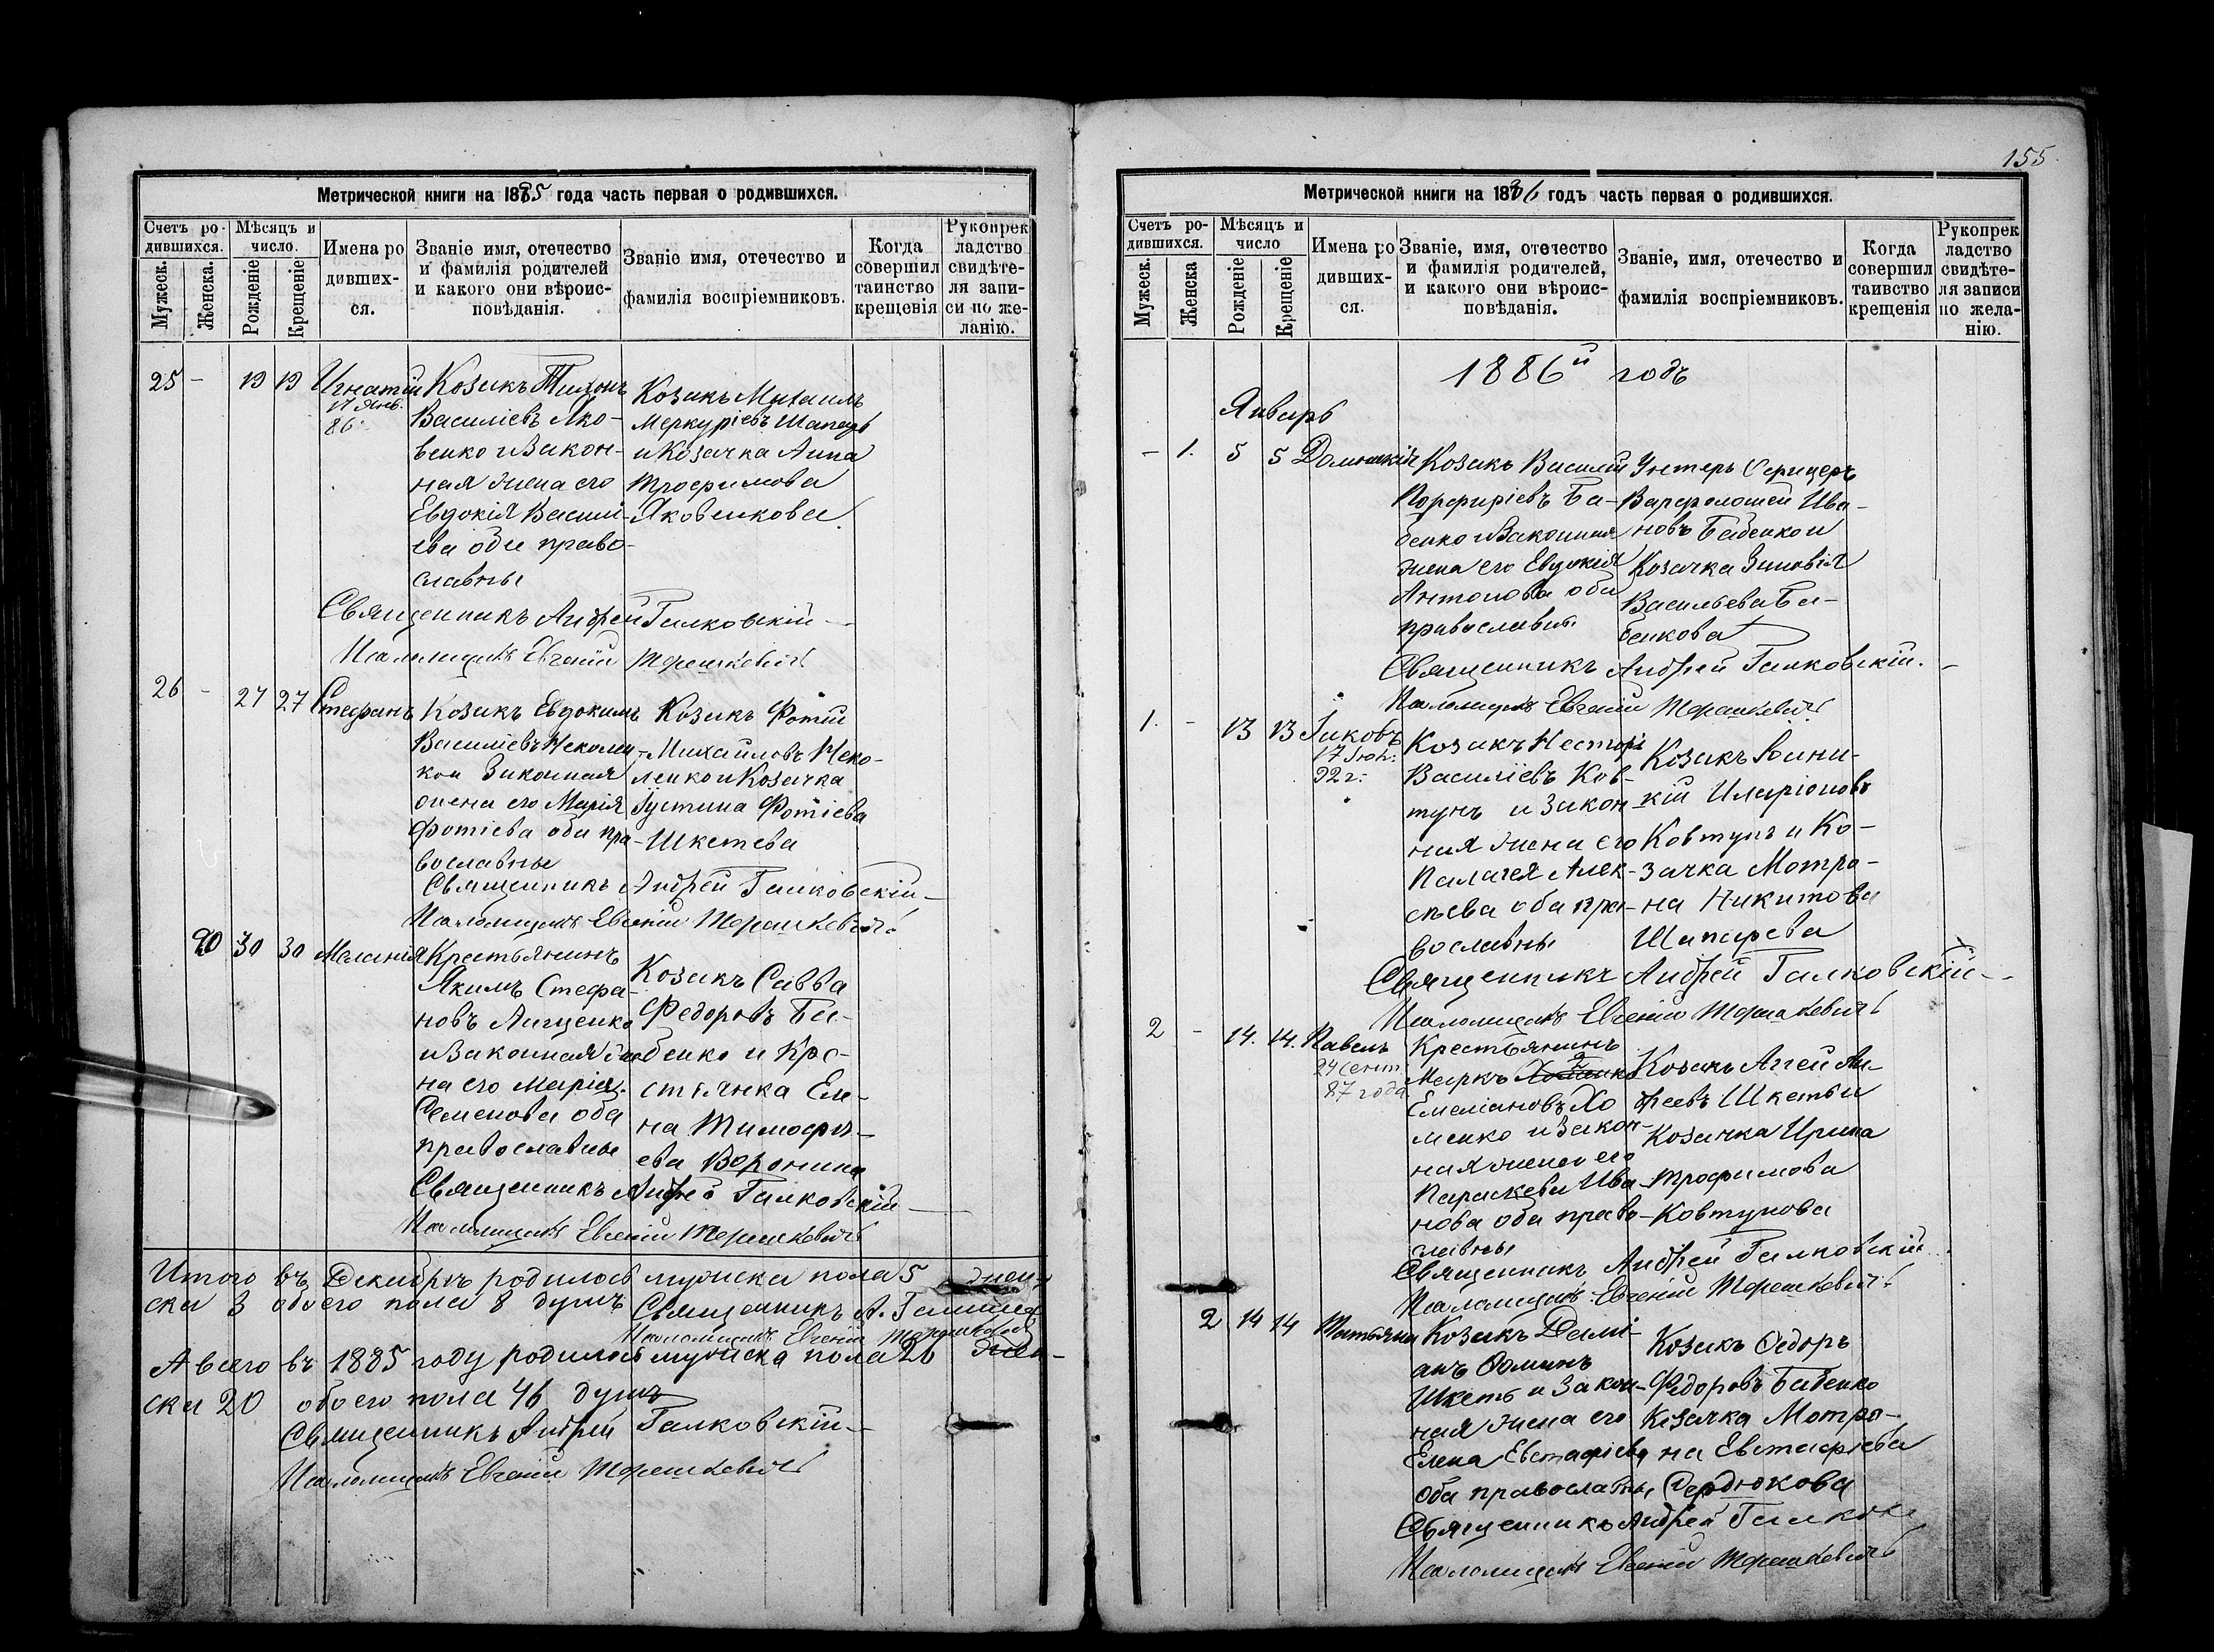 Метрической книги на 1885 года часть первая о родившихся.
Счетъ родившихся.
Мужеск.
Женска.
Мѣсяцъ и число.
Рожденіе
Крещеніе
Имена родившихся.
Званіе имя, отечество и фамилія родителей и какого они вѣроисповѣданія.
Званіе имя, отечество и фамилія воспріемниковъ.
Когда совершил таинство крещенія
Рукоприкладство свидѣтеля записи по желанію.
25 - 19 19 Игнатій
17 Янв.
86
Козакъ Тихонъ
Василіевъ Яко-
венко и Закон-
ная жена его
Евдокія Васили-
ева оба право-
славны
Козакъ Михаилъ
Меркуріевъ Шапарь
и Козачка Анна
Трофимова
Яковенкова
Священникъ Андрей Галковскій
Псаломщикъ Евгеній Терешкевичъ
26 - 27 27 Стефанъ
Козакъ Евдокимъ
Василіевъ
Законная
жена его Марія
Фотіева оба пра-
вославны
Козакъ Фотій
Михаиловъ Неко-
ленко и Козачка
Іустина Фотіева
Шкетева
Священникъ Андрей Галковскій
Псаломщикъ Евгеній Терешкевичъ
20 30 30 Меланія
Крестьянинъ
Якимъ Стефа-
новъ Лященко
и Законная же-
на его Марія
Семенова оба
православны
Козакъ Савва
Федоровъ Ба-
бенко и Кре-
стьянка Еле-
на Тимофѣ-
ева Воронина
Священникъ Андрей Галковскій
Псаломщикъ Евгеній Терешкевичъ
Итого въ Декабрѣ родилось мужска пола 5 жен-
ска 3 обоего пола 8 душъ Священникъ А. Галковск
Псаломщикъ Евгеній Терешкевичъ
А всего въ 1885 году родилось мужска пола 26 жен-
ска 20 обоего пола 46 душъ
Священникъ Андрей Галковскій
Псаломщикъ Евгеній Терешкевичъ
155
Метрической книги на 1886 годъ часть первая о родившихся.
Счетъ родившихся.
Мужеск.
Женска
Мѣсяцъ и число
Рожденіе
Крещеніе
Имена родившихся.
Званіе, имя, отечество и фамилія родителей, и какого они вѣроисповѣданія.
Званіе, имя, отечество и фамилія воспріемниковъ.
Когда совершил таинство крещенія
Рукоприкладство свидѣтеля записи по желанію.
1886й годъ
Январь
- 1. 5 5 Домникія
Козакъ Василій
Порфиріевъ Ба-
бенко и Законная
жена его Евдокія
Антонова оба
православны
Унтеръ Офицеръ
Варфоломей Ива-
новъ Бабенко и
Козачка Зиновія
Васильева Ба-
бенкова
Священникъ Андрей Галковскій.
Псаломщикъ Евгеній Терешкевичъ
1. - 13 13 Іаковъ
92 г.
Козакъ Несторъ
Василіевъ Ков-
тунъ и Закон-
ная жена его
Палагея Алек-
сѣева оба пра-
вославны
Козакъ Іоани-
кій Иларіоновъ
Ковтунъ и Ко-
зачка Мотро-
на Никитова
Шапарева
Священникъ Андрей Галковскій
Псаломщикъ Евгеній Терешкевичъ
2 - 14. 14. Павелъ
24 Сент.
87 года
Крестьянинъ
Маркъ
Емеліановъ Хо
менко и Закон-
ная жена его
Параскева Ива-
нова оба право-
славны
Козакъ Агей Ан-
дреевъ Шкеть и
Козачка Ирина
Трофимова
Ковтунова
Священникъ Андрей Галковскій
Псаломщикъ Евгеній Терешкевичъ
2 14 14 Татьяна
Козакъ Дамі-
анъ Фоминъ
Шкеть и Закон-
ная жена его
Елена Евстафіева
оба православны
Козакъ Федоръ
Федоровъ Бабенко
Козачка Мотро-
на Евстафіева
Сердюкова
Священникъ Андрей Галков
Псаломщикъ Евгеній Терешкевичъ